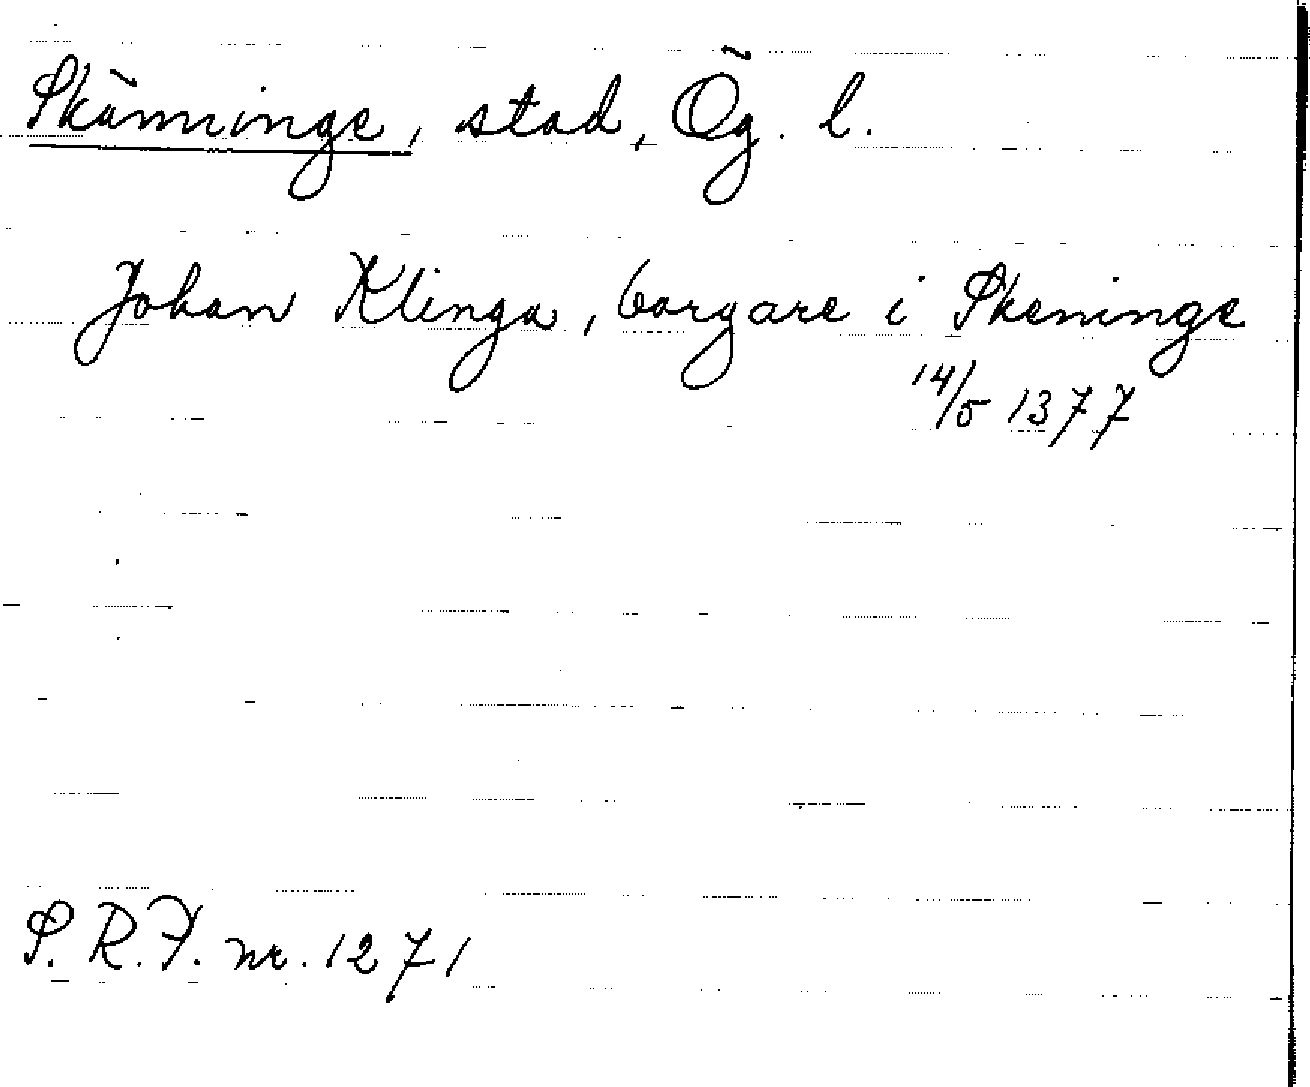 Skänninge, stad, Ög. l.
Johan Klinga, borgare i Skeninge
14/5 1377
S. R. P. nr. 1271